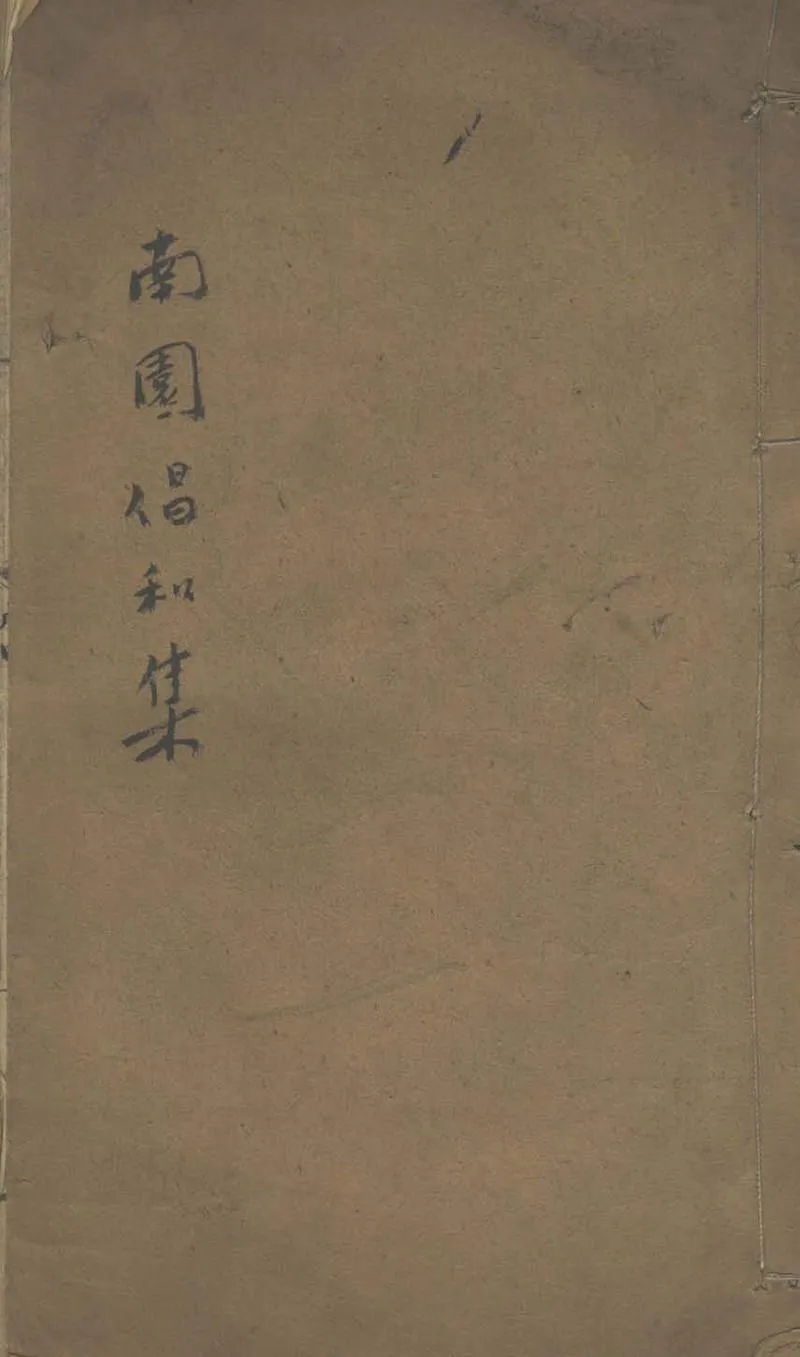 南園倡和集